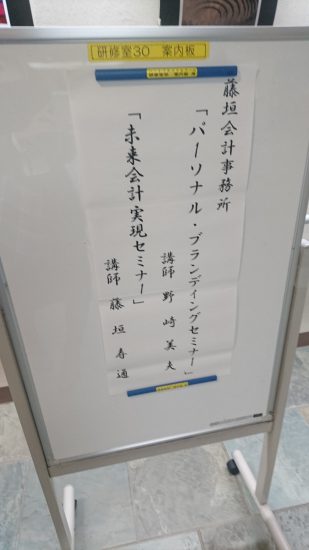 研修室30　案内板
藤垣会計事務所
「パーソナル・ブランディングセミナー」
講師　野崎美夫
「未来会計実現セミナー」
講師　藤垣春通